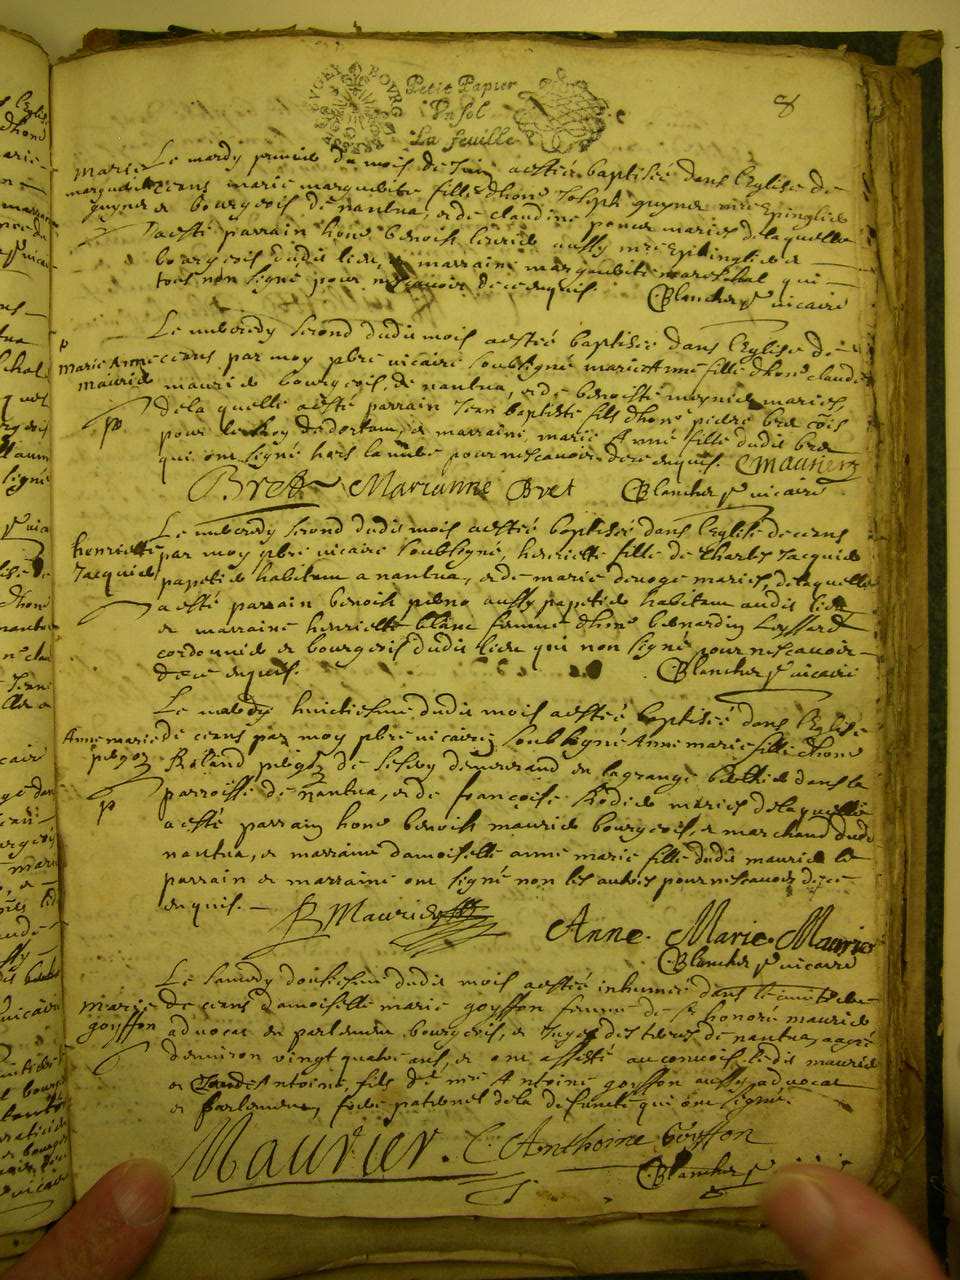 8
Petit Papier
Un sol
La feuille
Marie
marguerite
guyne
Le mardy premier du mois de Juin a esté baptisée dans l'Eglise de
ceans marie marguerite fille d'hon^e Joseph guyne m^re Epinglier
et bourgeois de nantua, et de claudine mariés de laquelle
a esté parrain hon^e benoist aussy m^re Epinglier et
bourgeois dudit lieu, et marraine marguerite mareschal qui
tous non signé pour ne scavoir de ce enquis. Blanchet vicaire
p
marie Anne
maurier
p
Le mercredy second dudit mois a esté baptisée dans l'Eglise de
ceans par moy p^bre vicaire soubsigné marie Anne fille d'hon^e claude
maurier bourgeois de nantua, et de benoiste mariés,
de la quelle a esté parrain Jean baptiste fils d'hon^e pierre bret
pour le Roy de dortam, et marraine marie Anne fille dudit bret
qui ont signé hors la mere pour ne scavoir de ce enquis. Maurier
Bret Marianne Bret Blanchet vicaire
henriette
Jacquier
Le mercredy second dudit mois a esté baptisée dans l'Eglise de ceans
par moy p^bre vicaire soubsigné, henriette fille de Charles Jacquier
papetier habitant a nantua, et de marie mariés, de laquelle
a esté parrain benoist aussy papetier habitant audit lieu
et marraine henriette blanc femme d'hon^e bernardin
cordonnier et bourgeois dudit lieu qui non signé pour ne scavoir
de ce enquis. Blanchet vicaire
Anne marie
p
Le huictiesme dudit mois a esté baptisée dans l'Eglise
de ceans par moy p^bre vicaire soubsigné Anne marie fille d'hon^e
Roland de demeurant en la grange dans la
parroisse de nantua, et de françoise mariés de laquelle
a esté parrain hon^e benoist maurier bourgeois, et marchand dudit
nantua, et marraine damoiselle anne marie fille dudit maurier le
parrain et marraine ont signé non les autres pour ne scavoir de ce
enquis. B Maurier Anne Marie Maurier
Blanchet vicaire
Marie
goyffon
Le samedy douziesme dudit mois a esté inhumée dans le cimetiere
de ceans damoiselle marie goyffon femme de s^r honoré maurier
advocat en parlement bourgeois, et Juge des terres de nantua agée
d'environ vingt quatre ans, et ont assisté au convois ledit maurier
et Antoine, fils de m^re Antoine goyffon aussy advocat
en parlement, frere paternel de la defuncte qui ont signé.
Maurier. Anthoine Goyffon
Blanchet